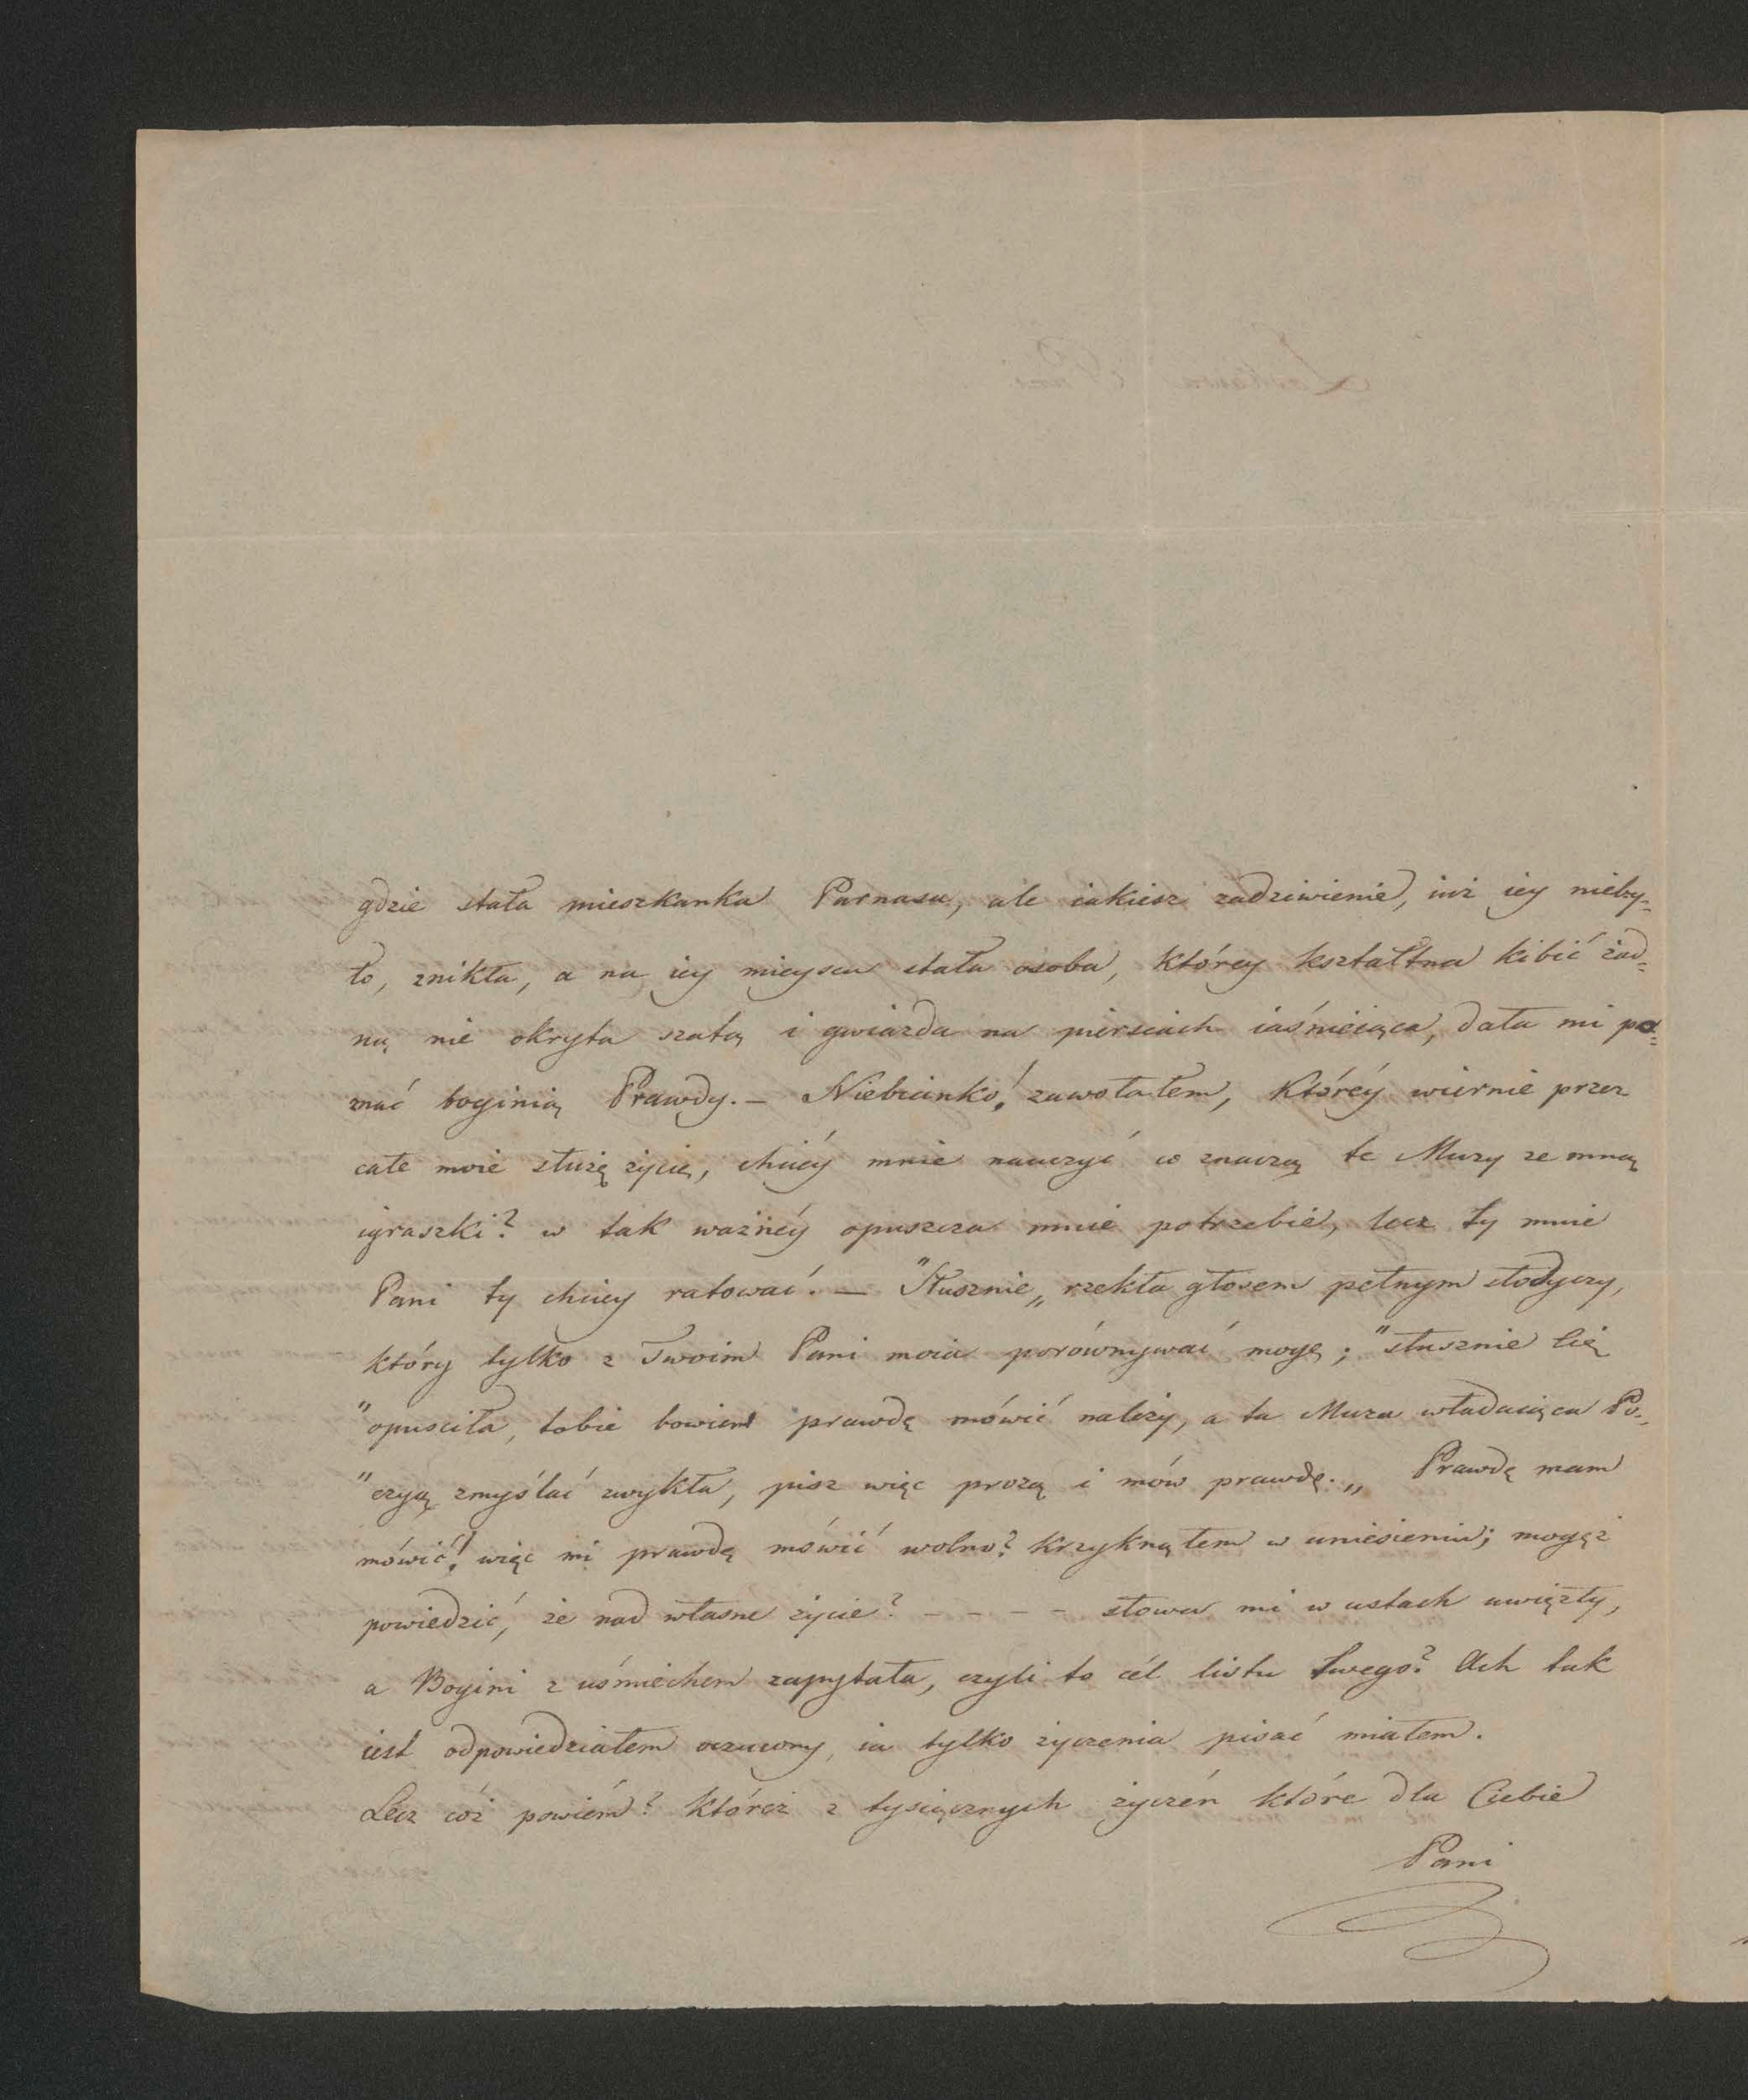 gdzie stała mieszkanka Parnasu, ale iakiesz zadziwienie, iuż iey nieby-
ło, znikła, a na iey mieyscu stała osoba, którey kształtna kibić żad-
ną nie okryta szatą i gwiazda na piersiach iaśnieiąca, dała mi po-
znać boginią Prawdy. – Niebianko! zawołałem, któréy wiernie przez
całe moie służę życie, chciéy mnie nauczyć co znaczą te Muzy ze mną
igraszki? w tak ważnéy opuszcza mnie potrzebie, lecz ty mnie
Pani ty chciey ratować. – "Słusznie„ rzekła głosem pełnym słodyczy,
który tylko z Twoim Pani moia porównywać mogę; "słusznie Cię
"opusciła, tobie bowiem prawdę mówić należy, a ta Muza władaiąca Po-
"ezyą zmyślać zwykła, pisz więc prozą i mów prawdę.„ Prawdę mam
mówić! więc mi prawdę mówić wolno? krzyknąłem w uniesieniu; mogęż
powiedzić, że nad własne życie? – – – – słowa mi w ustach uwięzły,
a Bogini z uśmiechem zapytała, czyli to cél listu twego? Ach tak
iest odpowiedziałem ocucony, ia tylko życzenia pisać miałem.
Lecz cóż powiém? któreż z tysiącznych życzén które dla Ciebie
Pani
Łaskawa Pani